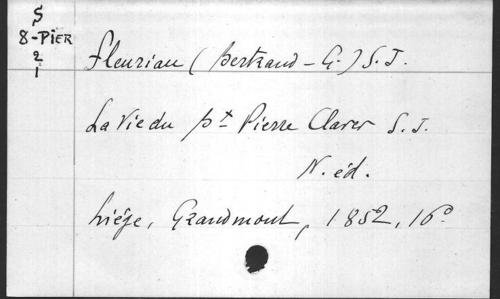 S
8-PIER
2
1
Fleuriau (Bertrand-G.) S.J.
La Vie du bx Pierre Claver S.J.
N. éd.
Liége, Grandmont, 1852, 16°